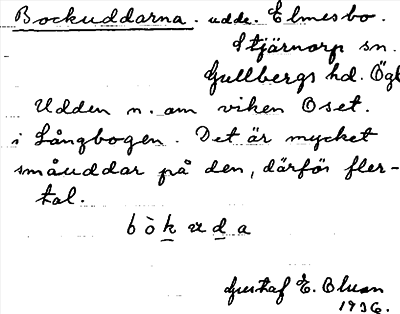 Bockuddarna. udde. Elmesbo.
Stjärnorp sn.
Gullbergs hd. Ögl
Udden n. om viken Oset.
i Långbogen. Det är mycket
småuddar på den, därför fler-
tal.
bòkuda
Gustaf E. Olson
1936.